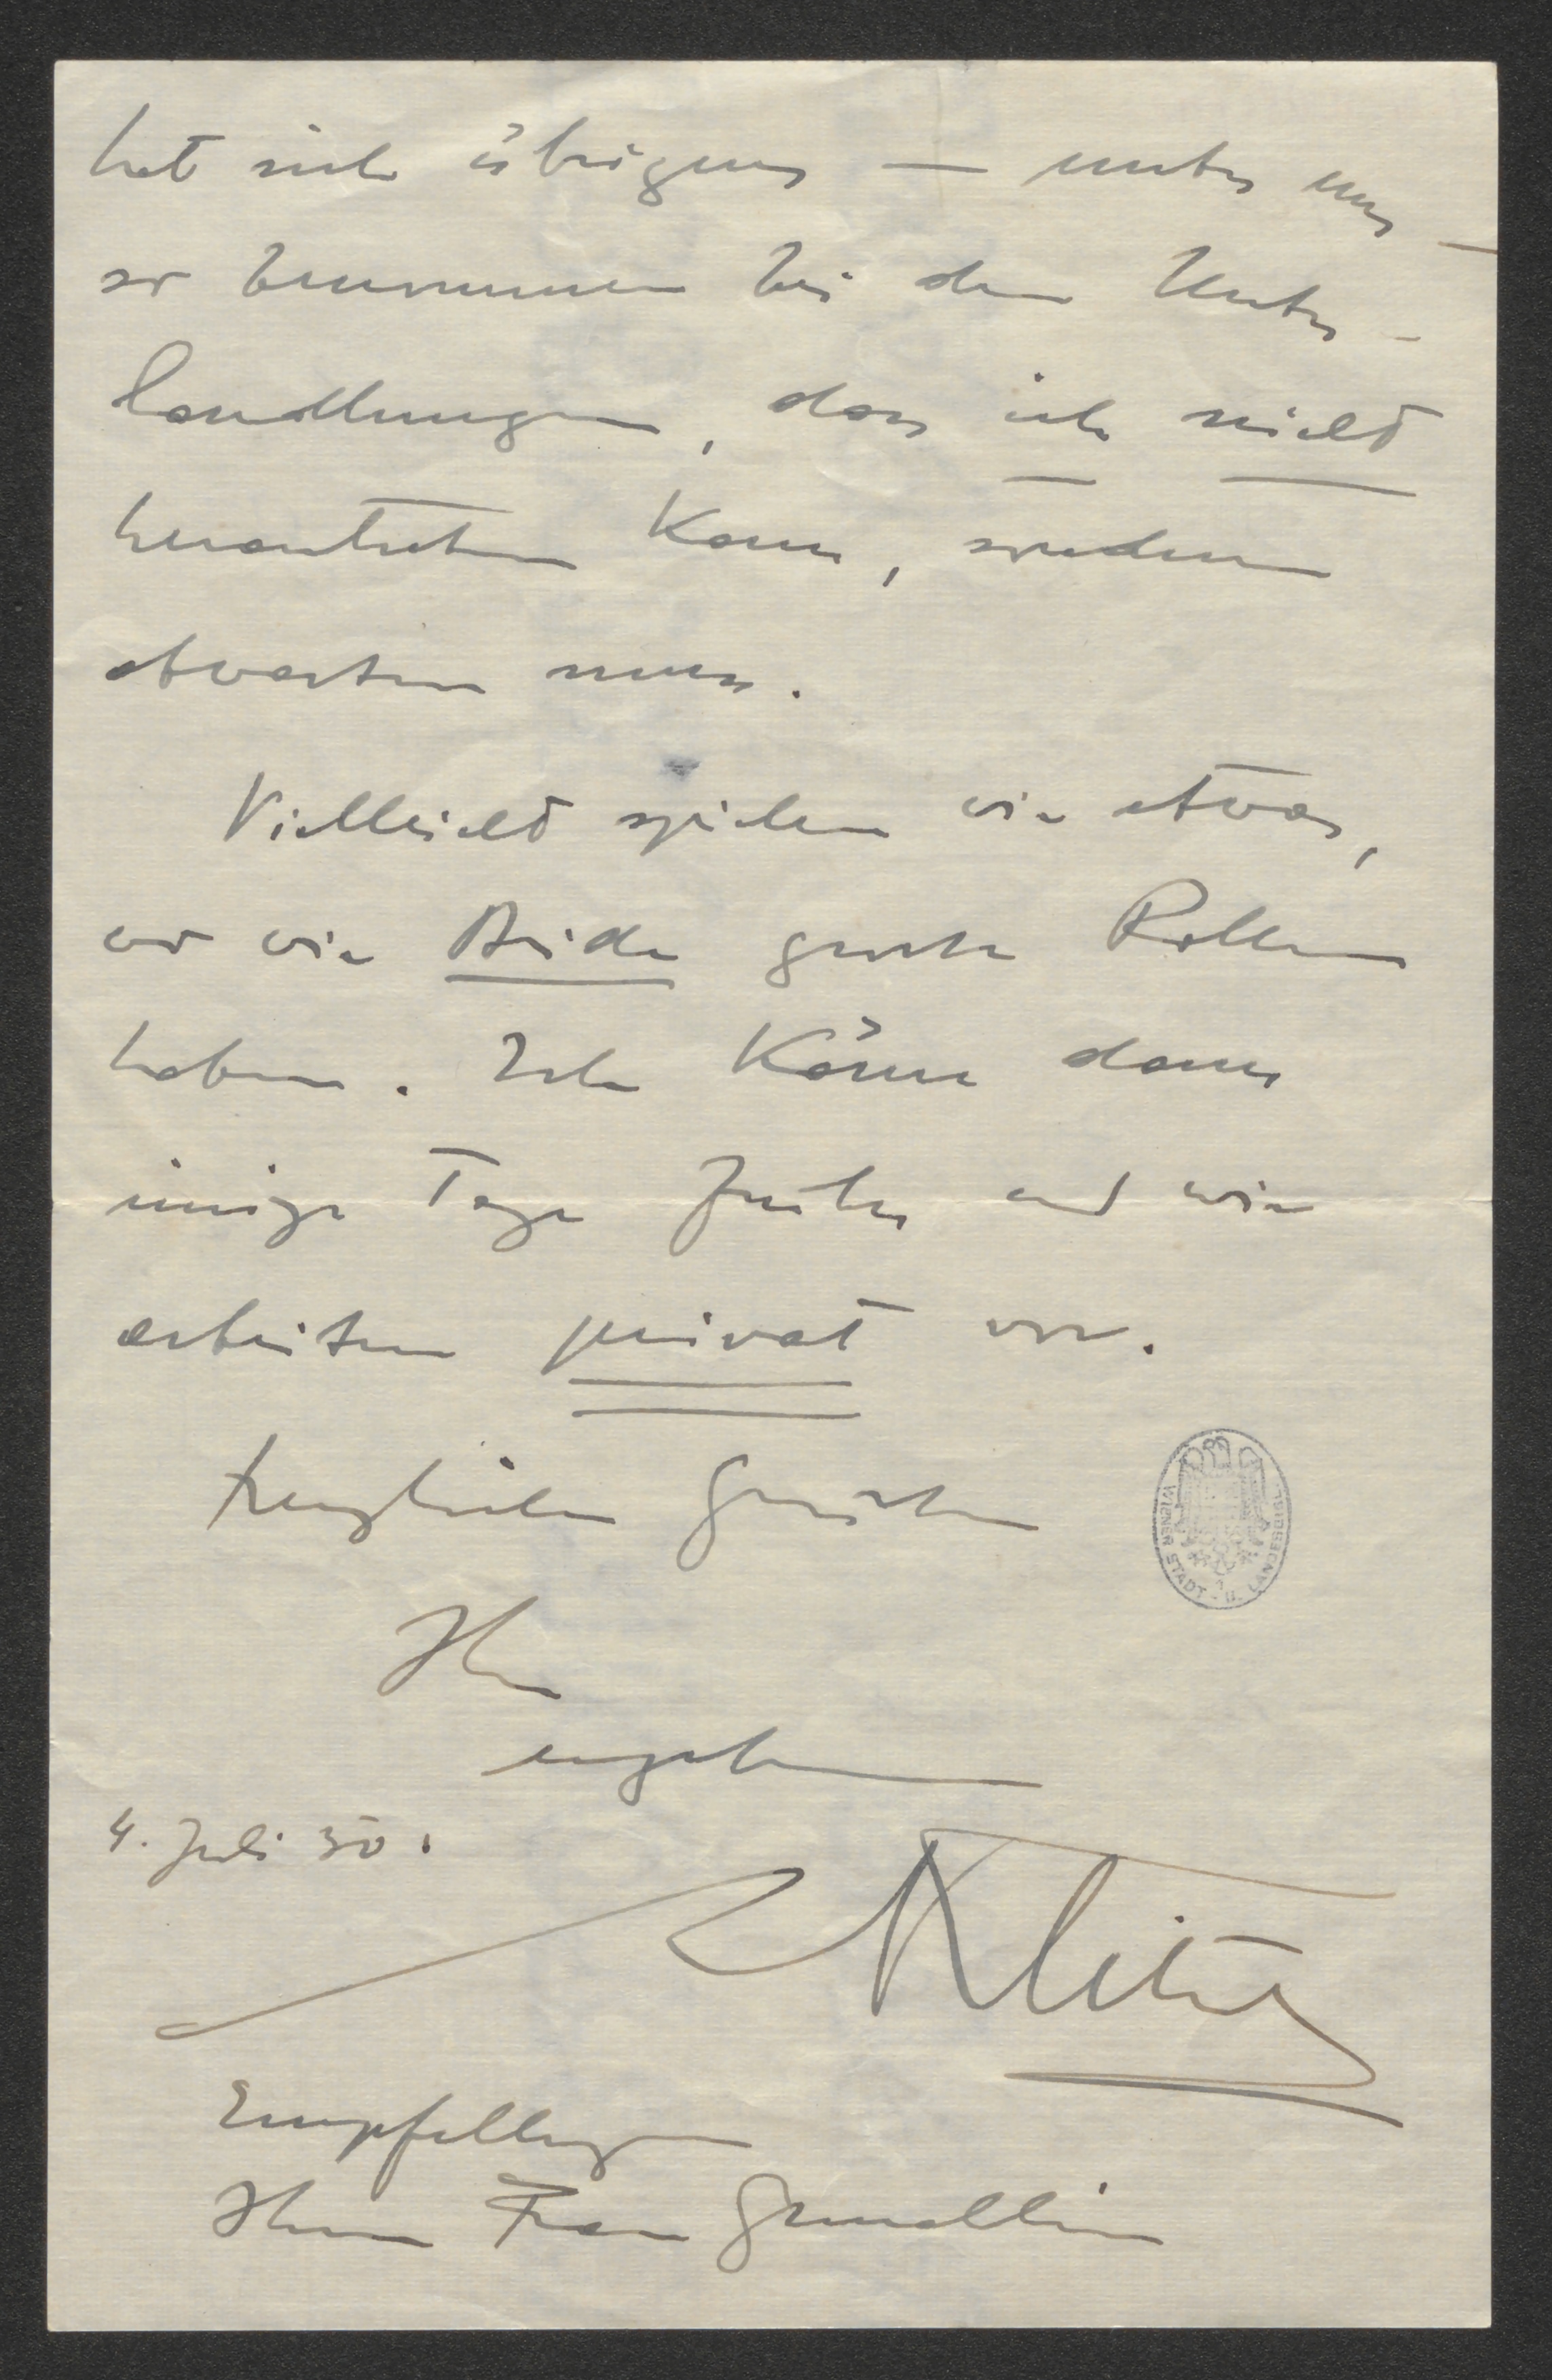 hat sich übrigens — unter uns —
so benommen bei den Unter-
handlungen, dass ich nicht
herantreten kann, sondern
abwarten muss.
Vielleicht spielen wir etwas,
wo wir Beide grosse Rollen
haben. Ich käme dann
einige Tage früher und wir
arbeiten privat vor.
Herzlichen Grüssen
Ihr
ergebener
4. Juli 30.
Empfehlungen
Ihrer Frau Gemahlin
WIENER STADT- U. LANDESBIBL.